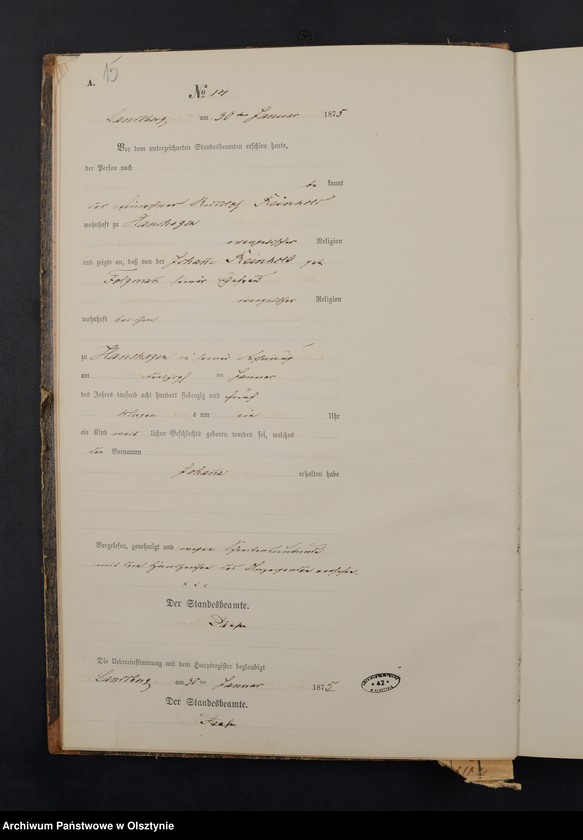 15
A.
№ 14
Landsberg am 30 ten Januar 1875
Vor dem unterzeichneten Standesbeamten erschien heute,
der Person nach
be kannt
der Reinhold
wohnhaft zu Hanshagen
evangelischer Religion
und zeigte an, daß von der Johanna Reinhold geb.
seiner Ehefrau
evangelischer Religion
wohnhaft bei ihm
zu Hanshagen in seiner Wohnung
am ten Januar
des Jahres tausend acht hundert siebenzig und fünf
um ein Uhr
ein Kind weib lichen Geschlechts geboren worden sei, welches
den Vornamen
Johanna
erhalten habe
Vorgelesen, genehmigt und wegen Schreibensunkunde
mit dem Handzeichen des Anzeigenden versehen.
x x x
Der Standesbeamte.
Die Uebereinstimmung mit dem Hauptregister beglaubigt
Landsberg am 30 ten Januar 1875
Der Standesbeamte.
* 42 *
Archiwum Państwowe w Olsztynie